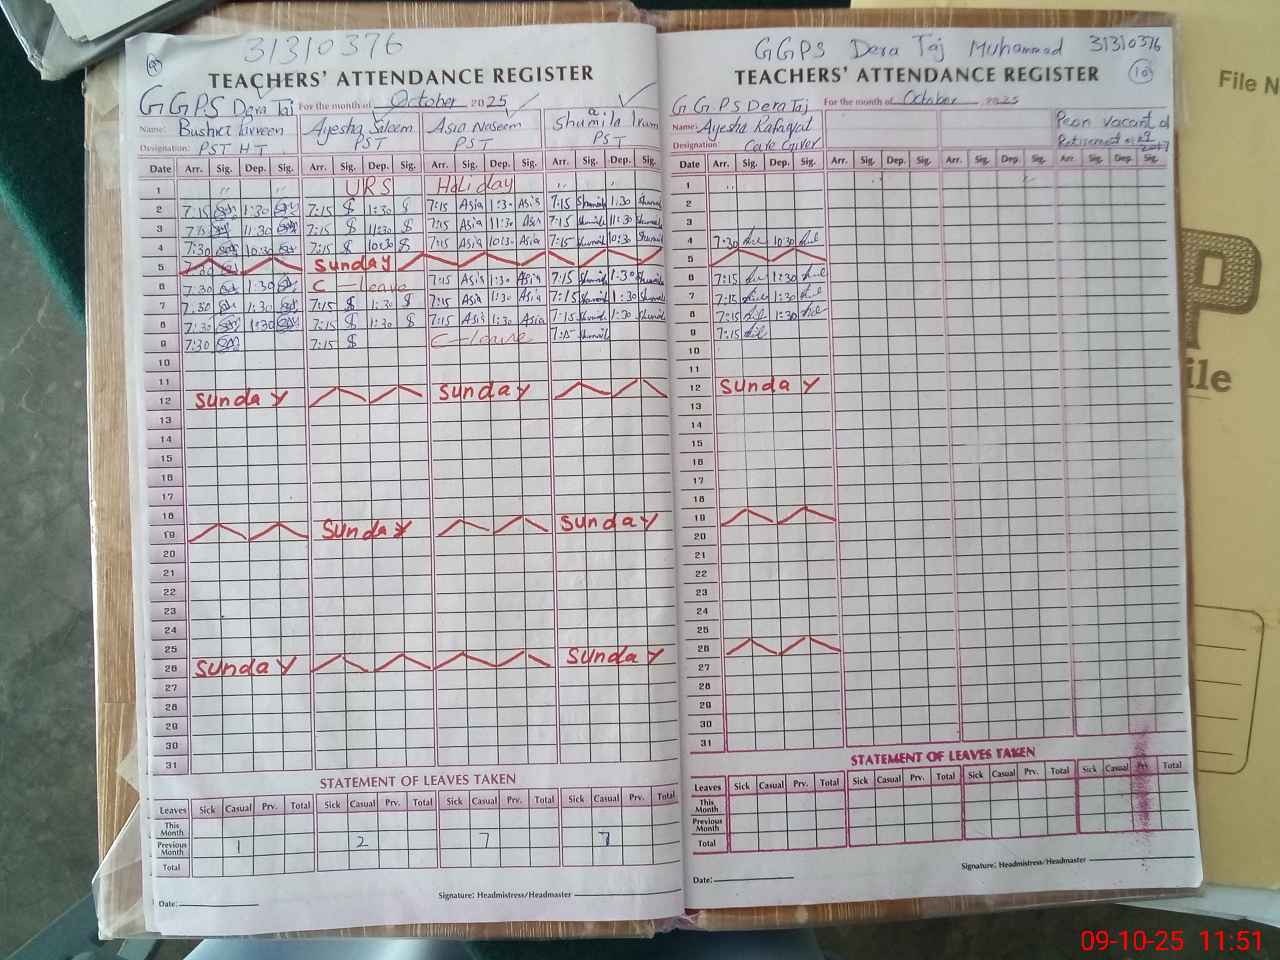 31310376
TEACHERS' ATTENDANCE REGISTER
GGPS Dera Taj For the month of October 2025
Name: Bushra Parveen Ayesha Saleem Asia Naseem Shamila Iram
Designation: PST HT PST PST PST
Date Arr. Sig. Dep. Sig. Arr. Sig. Dep. Sig. Arr. Sig. Dep. Sig. Arr. Sig. Dep. Sig.
1 URS Holiday
2 7:15 1:30 7:15 $ 1:30 $ 7:15 Asia 1:30 Asia 7:15 Shamila 1:30 Shamila
3 7:15 11:30 7:15 $ 11:30 $ 7:15 Asia 11:30 Asia 7:15 Shamila 11:30 Shamila
4 7:30 10:30 7:15 $ 10:30 $ 7:15 Asia 10:30 Asia 7:15 Shamila 10:30 Shamila
5 7:30 Sunday
6 7:30 1:30 C-leave 7:15 Asia 1:30 Asia 7:15 Shamila 1:30 Shamila
7 7:30 1:30 7:15 $ 1:30 $ 7:15 Asia 1:30 Asia 7:15 Shamila 1:30 Shamila
8 7:30 1:30 7:15 $ 1:30 $ 7:15 Asia 1:30 Asia 7:15 Shamila 1:30 Shamila
9 7:30 7:15 $ C-leave 7:15 Shamila
10
11
12 Sunday Sunday
13
14
15
16
17
18
19 Sunday Sunday
20
21
22
23
24
25
26 Sunday Sunday
27
28
29
30
31
STATEMENT OF LEAVES TAKEN
Leaves Sick Casual Prv. Total Sick Casual Prv. Total Sick Casual Prv. Total Sick Casual Prv. Total
This Month
Previous Month 1 2 7 7
Total
Signature: Headmistress/Headmaster
Date:
GGPS Dera Taj Muhammad 31310376
TEACHERS' ATTENDANCE REGISTER 10
GGPS Dera Taj For the month of October 2025
Name: Ayesha Rafaqal Peon vacant
Designation Care Giver Retirement
Date Arr. Sig. Dep. Sig. Arr. Sig. Dep. Sig. Arr. Sig. Dep. Sig. Arr. Sig. Dep. Sig.
1
2
3
4 7:30 10:30
5
6 7:15 1:30
7 7:15 1:30
8 7:15 1:30
9 7:15
10
11
12 Sunday
13
14
15
16
17
18
19
20
21
22
23
24
25
26
27
28
29
30
31
STATEMENT OF LEAVES TAKEN
Leaves Sick Casual Prv. Total Sick Casual Prv. Total Sick Casual Prv. Total Sick Casual Prv. Total
This Month
Previous Month
Total
Signature: Headmistress/Headmaster
Date:
File N
P
ile
09-10-25 11:51